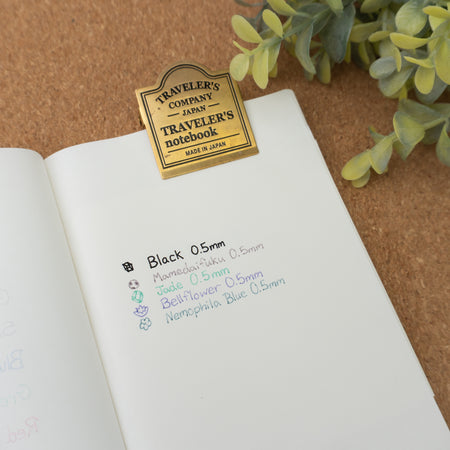 TRAVELER'S
COMPANY
JAPAN
TRAVELER'S
notebook
MADE IN JAPAN
Black 0.5mm
Mamedaifuku 0.5mm
Jade 0.5mm
Bellflower 0.5mm
Nemophila Blue 0.5mm